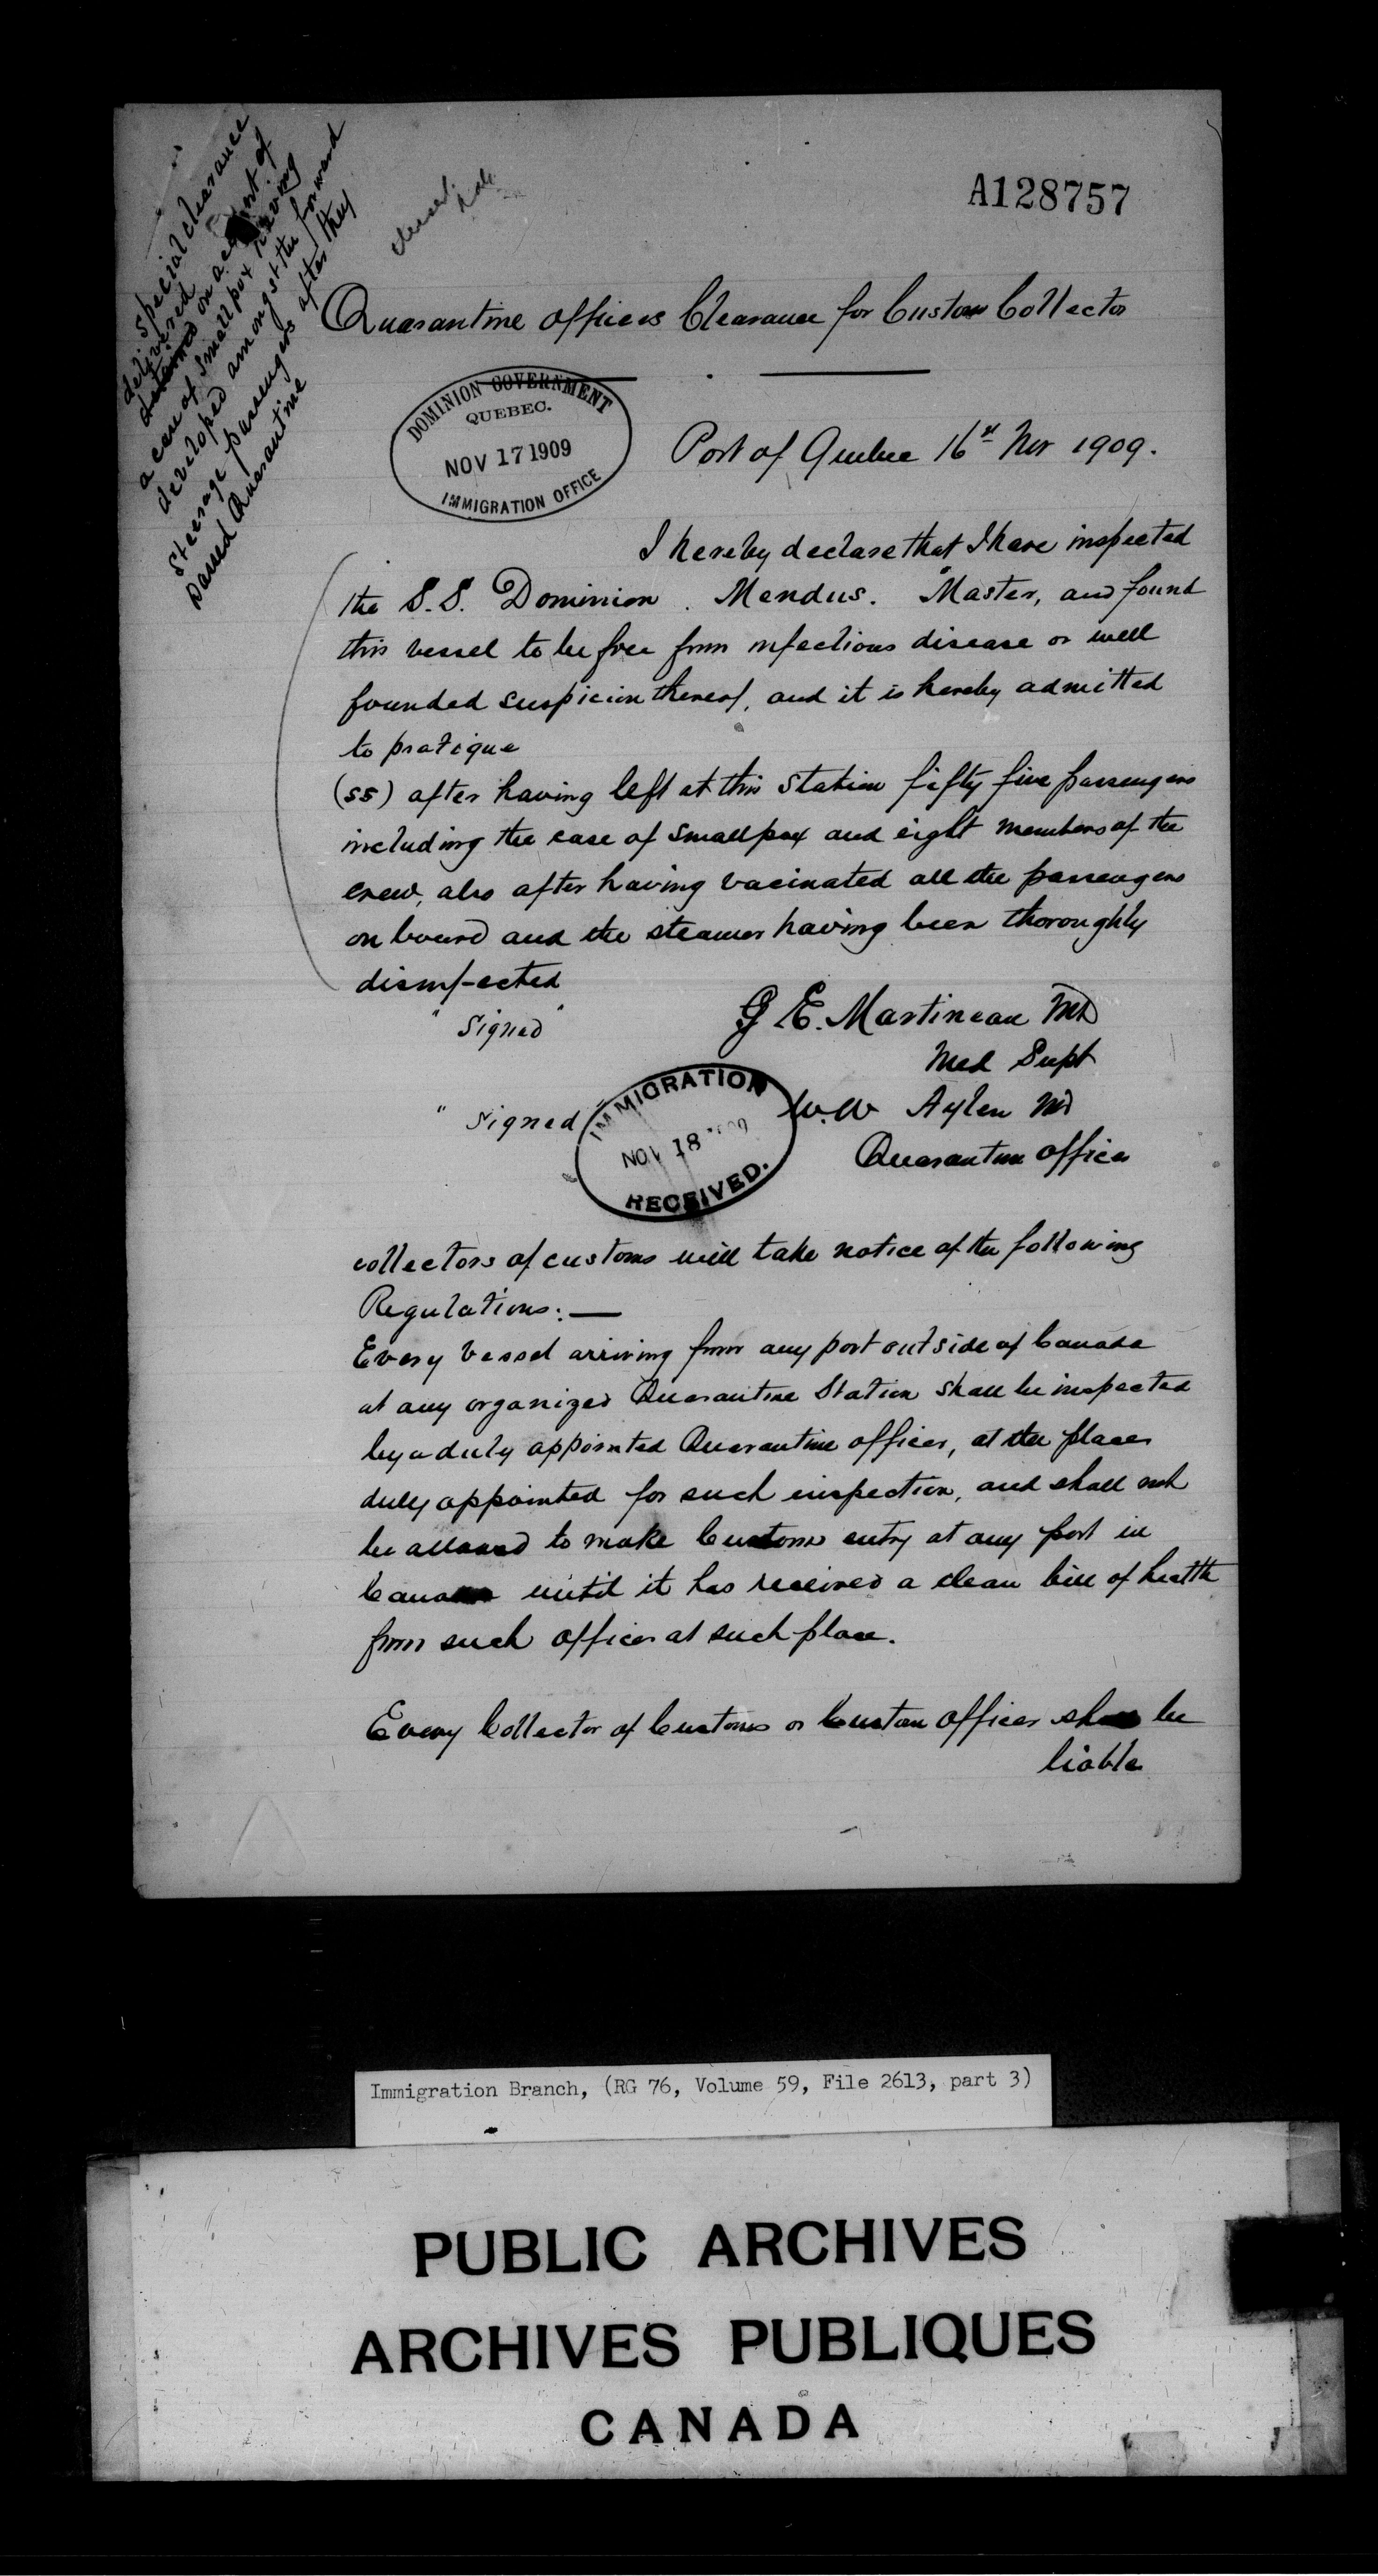 A128757
special clearance
delivered
detained on account of
a case of Smallpox having
developed amongst the forward
steerage passengers after they
passed Quarantine
Quarantine Officers Clearance for Custom Collector
DOMINION GOVERNMENT
QUEBEC.
NOV 17 1909
IMMIGRATION OFFICE
Port of Quebec 16th Nov 1909.
I hereby declare that I have inspected
the S.S. Dominion. Mendus. Master, and found
this vessel to be free from infectious disease or well
founded suspicion thereof, and it is hereby admitted
to pratique
(55) after having left at this Station fifty five passengers
including the case of smallpox and eight members of the
crew, also after having vacinated all the passengers
on board and the steamer having been thoroughly
disinf-ected
"Signed" G E. Martineau MD
Med Supt
"Signed" W.W Aylen MD
Quarantine Officer
IMMIGRATION
NOV 18 1909
RECEIVED.
collectors of customs will take notice of the following
Regulations:—
Every vessel arriving from any port outside of Canada
at any organized Quarantine Station shall be inspected
by a duly appointed Quarantine officer, at the place
duly appointed for such inspection, and shall not
be allowed to make Customs entry at any port in
Canada until it has received a clean bill of health
from such officer at such place.
Every Collector of Customs or Custom Officer shall be
liable
Immigration Branch, (RG 76, Volume 59, File 2613, part 3)
PUBLIC ARCHIVES
ARCHIVES PUBLIQUES
CANADA